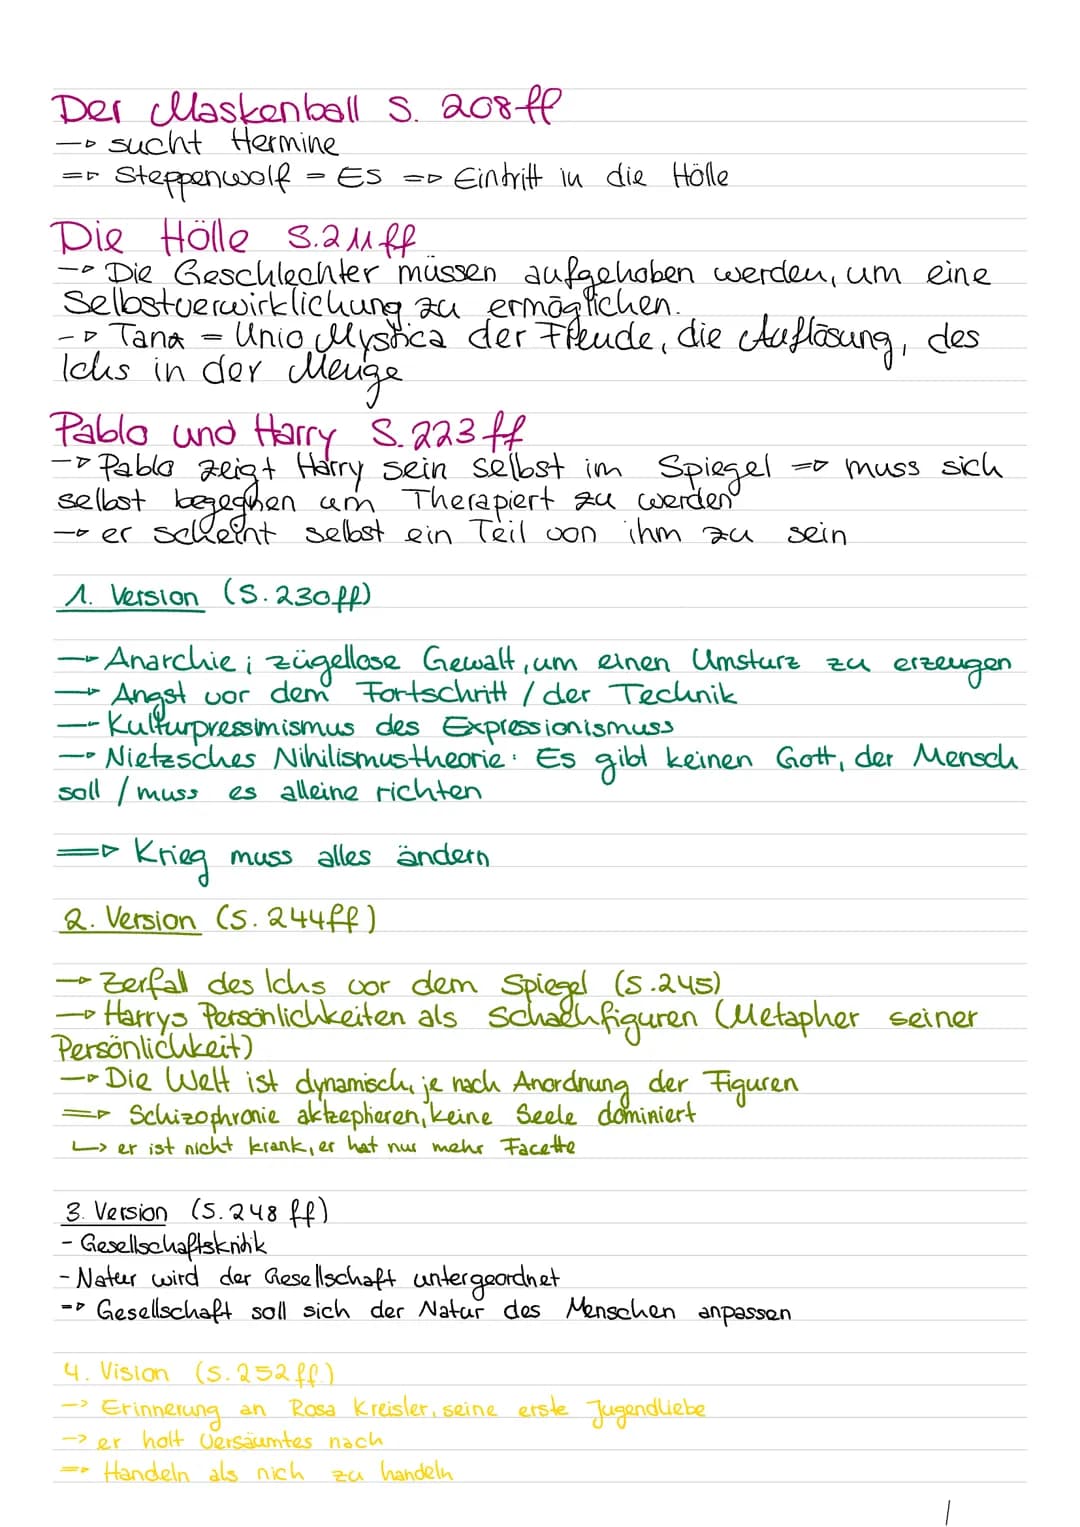 Der Maskenball S. 208ff
→ sucht Hermine
⇒ Steppenwolf = ES ⇒ Eintritt in die Hölle
Die Hölle S.211ff
→ Die Geschlechter müssen aufgehoben werden, um eine
Selbstverwirklichung zu ermöglichen.
→ Tanz = Unio Mystica der Freude, die Auflösung, des
Ichs in der Menge
Pablo und Harry S.223ff
→ Pablo zeigt Harry sein selbst im Spiegel ⇒ muss sich
selbst begegnen um Therapiert zu werden
→ er scheint selbst ein Teil von ihm zu sein
1. Version (S.230ff)
→ Anarchie; zügellose Gewalt, um einen Umsturz zu erzeugen
→ Angst vor dem Fortschritt / der Technik
→ Kulturpressimismus des Expressionismuss
→ Nietzsches Nihilismustheorie: Es gibt keinen Gott, der Mensch
soll / muss es alleine richten
⇒ Krieg muss alles ändern
2. Version (S.244ff)
→ Zerfall des Ichs vor dem Spiegel (S.245)
→ Harrys Persönlichkeiten als Schachfiguren (Metapher seiner
Persönlichkeit)
→ Die Welt ist dynamisch, je nach Anordnung der Figuren
⇒ Schizophranie akzeptieren, keine Seele dominiert
↳ er ist nicht krank, er hat nur mehr Facette
3. Version (S.248 ff)
- Gesellschaftskritik
- Natur wird der Gesellschaft untergeordnet
→ Gesellschaft soll sich der Natur des Menschen anpassen
4. Vision (S.252ff.)
→ Erinnerung an Rosa Kreisler, seine erste Jugendliebe
→ er holt Versäumtes nach
⇒ Handeln als nich zu handeln